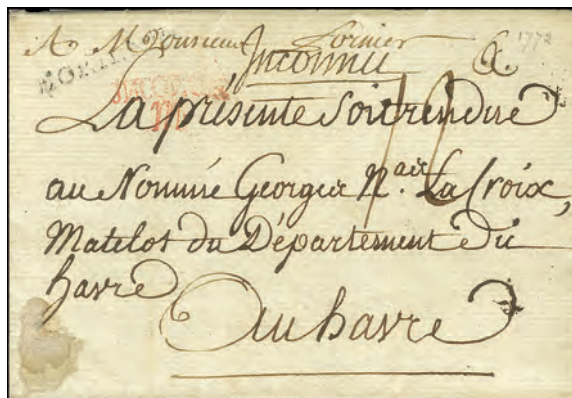 A Monsieur
Inconnu
1772
La présente Soit rendue
au Nommé George N.aire LaCroix,
Matelot du Département du
havre
Au havre